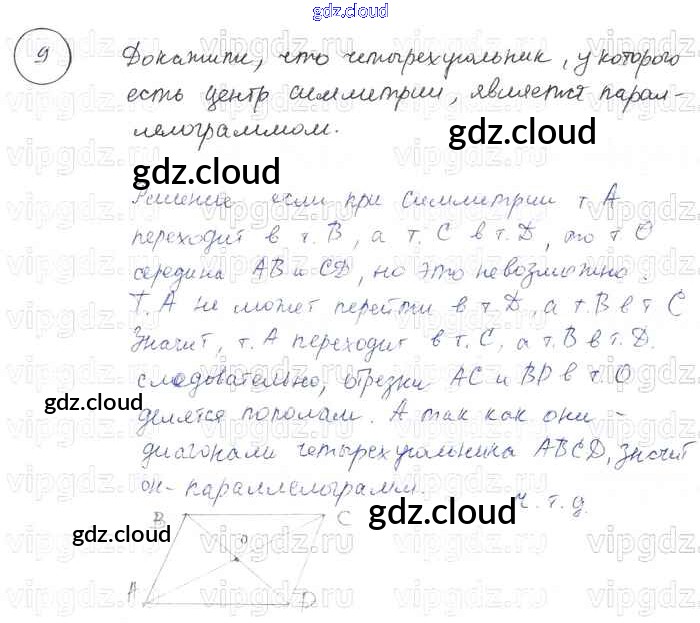 gdz.cloud
9 Докажите, что четырехугольник, у которого
есть центр симметрии, является парал-
лелограммом.
gdz.cloud
gdz.cloud
Решение если при симметрии т. А
переходит в т. В, а т. С в т. D, то т О
середина АВ и CD, но это невозможно.
Т. А не может перейти в т. D, а т. В в т С
Значит, т. А переходит в т. С, а т. В в т. D.
следовательно, отрезки АС и BD в т. О
gdz.cloud
делятся пополам. А так как они -
диагонали четырехугольника ABCD, значит
он - параллелограмм.
ч. т. д.
gdz.cloud
gdz.cloud
B C
O
A D